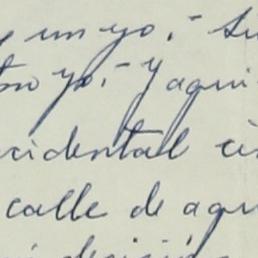 y un yo,- Su
tro yo,- Y aquí
ccidental
calle de aqu